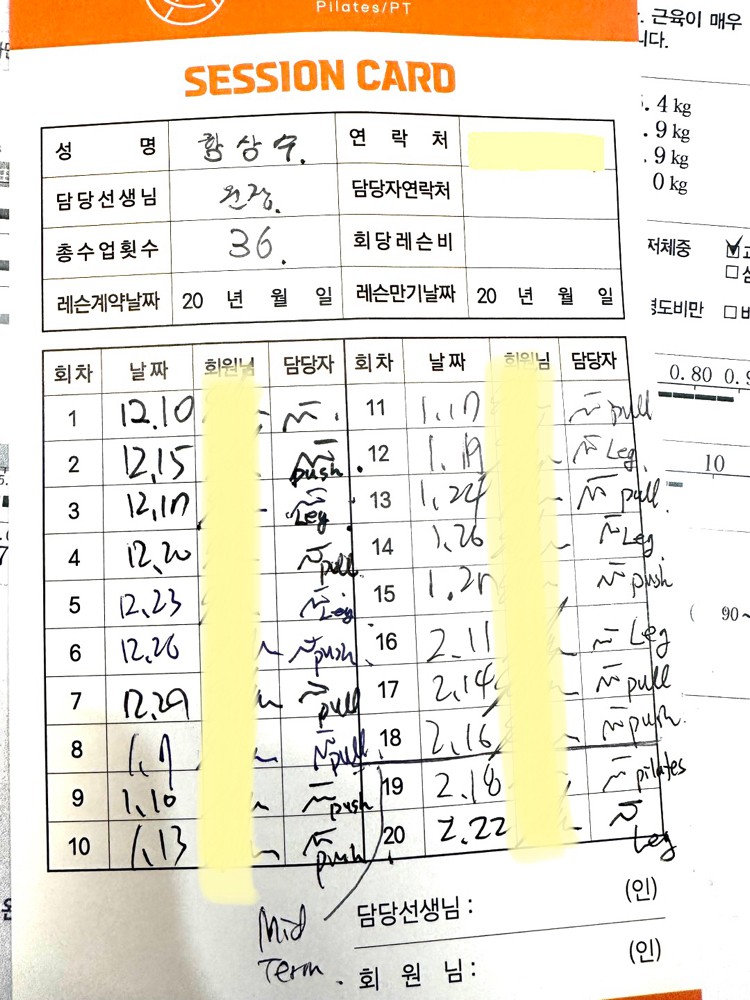 Pilates/PT
SESSION CARD
성 명 황상수. 연 락 처
담당선생님 원장. 담당자연락처
총수업횟수 36. 회당레슨비
레슨계약날짜 20 년 월 일 레슨만기날짜 20 년 월 일
회차 날짜 회원님 담당자 회차 날짜 회원님 담당자
1 12.10 11 1.17 pull
2 12.15 push. 12 1.19 Leg.
3 12.17 Leg 13 1.24 pull.
4 12.20 pull 14 1.26 Leg.
5 12.23 Leg 15 push
6 12.26 push 16 2.11 Leg
7 12.29 pull 17 2.14 pull
8 1.7 pull 18 2.16 push.
9 1.10 push 19 2.18 pilates
10 1.13 push 20 2.22 Leg
담당선생님 : (인)
Mid
Term. 회 원 님 : (인)
근육이 매우
니다.
4 kg
.9 kg
.9 kg
0 kg
저체중
경도비만
0.80 0.9
10
90~